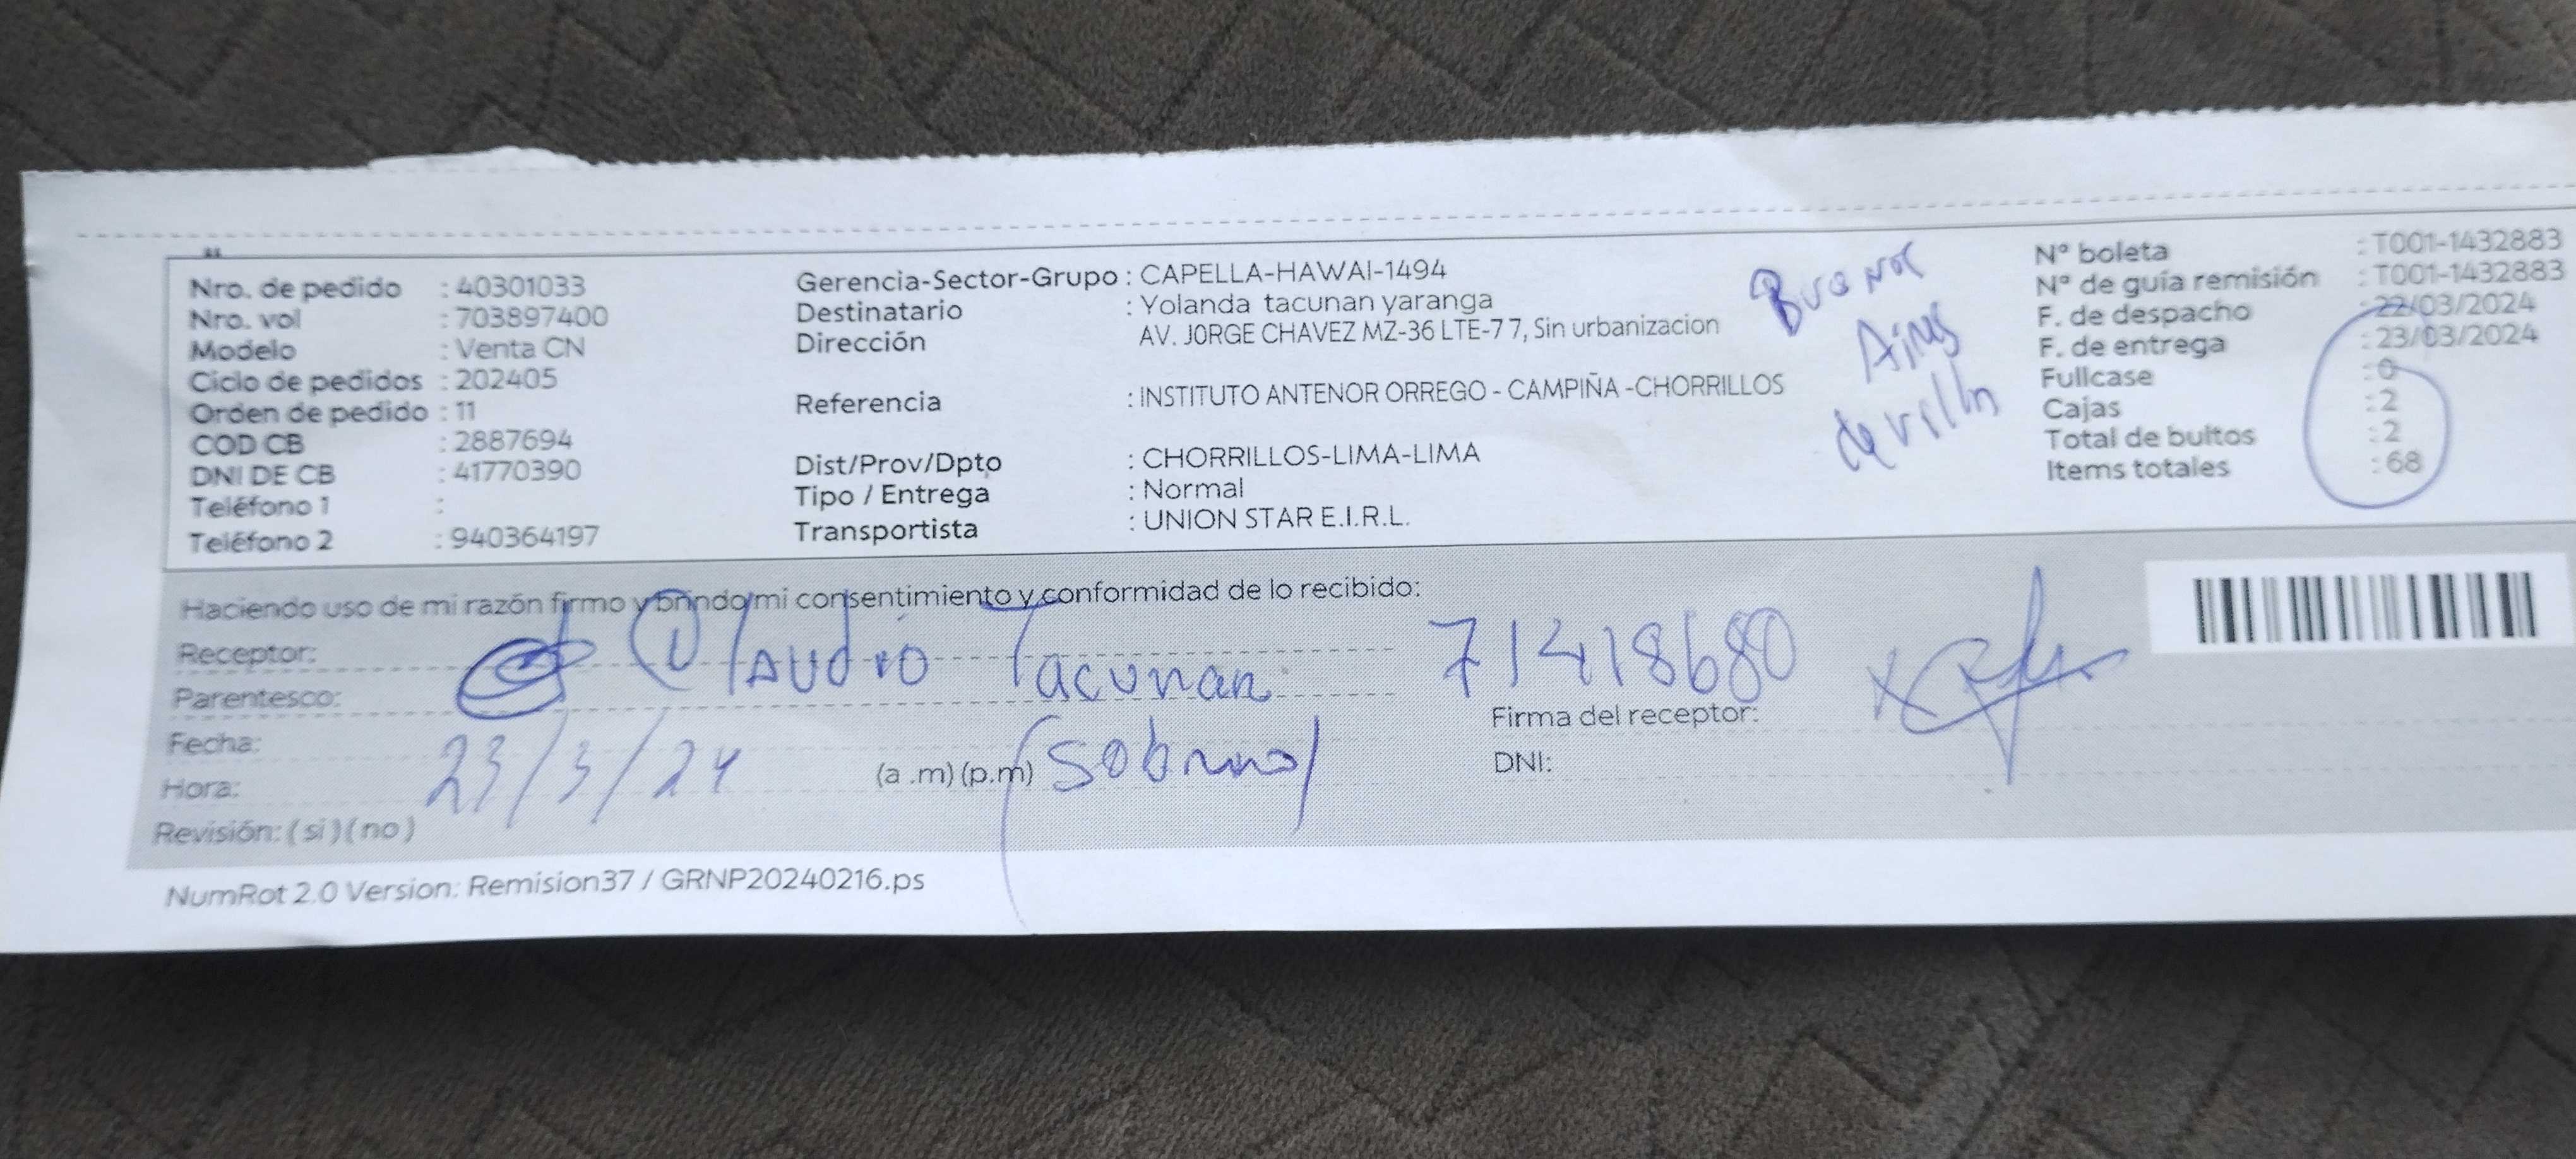 Nro. de pedido : 40301033
Nro. vol : 703897400
Modelo : Venta CN
Ciclo de pedidos : 202405
Orden de pedido : 11
COD CB : 2887694
DNI DE CB : 41770390
Teléfono 1 :
Teléfono 2 : 940364197
Gerencia-Sector-Grupo : CAPELLA-HAWAI-1494
Destinatario : Yolanda tacunan yaranga
Dirección AV. JORGE CHAVEZ MZ-36 LTE-77, Sin urbanizacion
Referencia : INSTITUTO ANTENOR ORREGO - CAMPIÑA -CHORRILLOS
Dist/Prov/Dpto : CHORRILLOS-LIMA-LIMA
Tipo / Entrega : Normal
Transportista : UNION STAR E.I.R.L.
Buenos
Aires
de villa
N° boleta : T001-1432883
N° de guía remisión : T001-1432883
F. de despacho : 22/03/2024
F. de entrega : 23/03/2024
Fullcase : 0
Cajas : 2
Total de bultos : 2
Items totales : 68
Haciendo uso de mi razón firmo y brindo mi consentimiento y conformidad de lo recibido:
Receptor: Claudio Tacunan 71418680
Parentesco: (sobrino)
Fecha: 23/3/24
Hora: (a .m) (p.m)
Revisión: ( si ) ( no )
Firma del receptor:
DNI:
NumRot 2.0 Version: Remision37 / GRNP20240216.ps